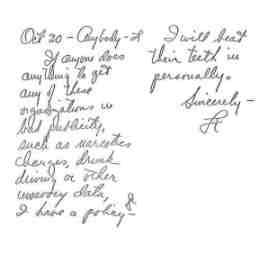 Oct 20 - Anybody -
If anyone does
anything to get
any of these
organizations in
bad publicity,
such as narcotics
charges, drunk
driving or other
unsavory data,
I have a policy -
I will beat
their teeth in
personally.
Sincerely -